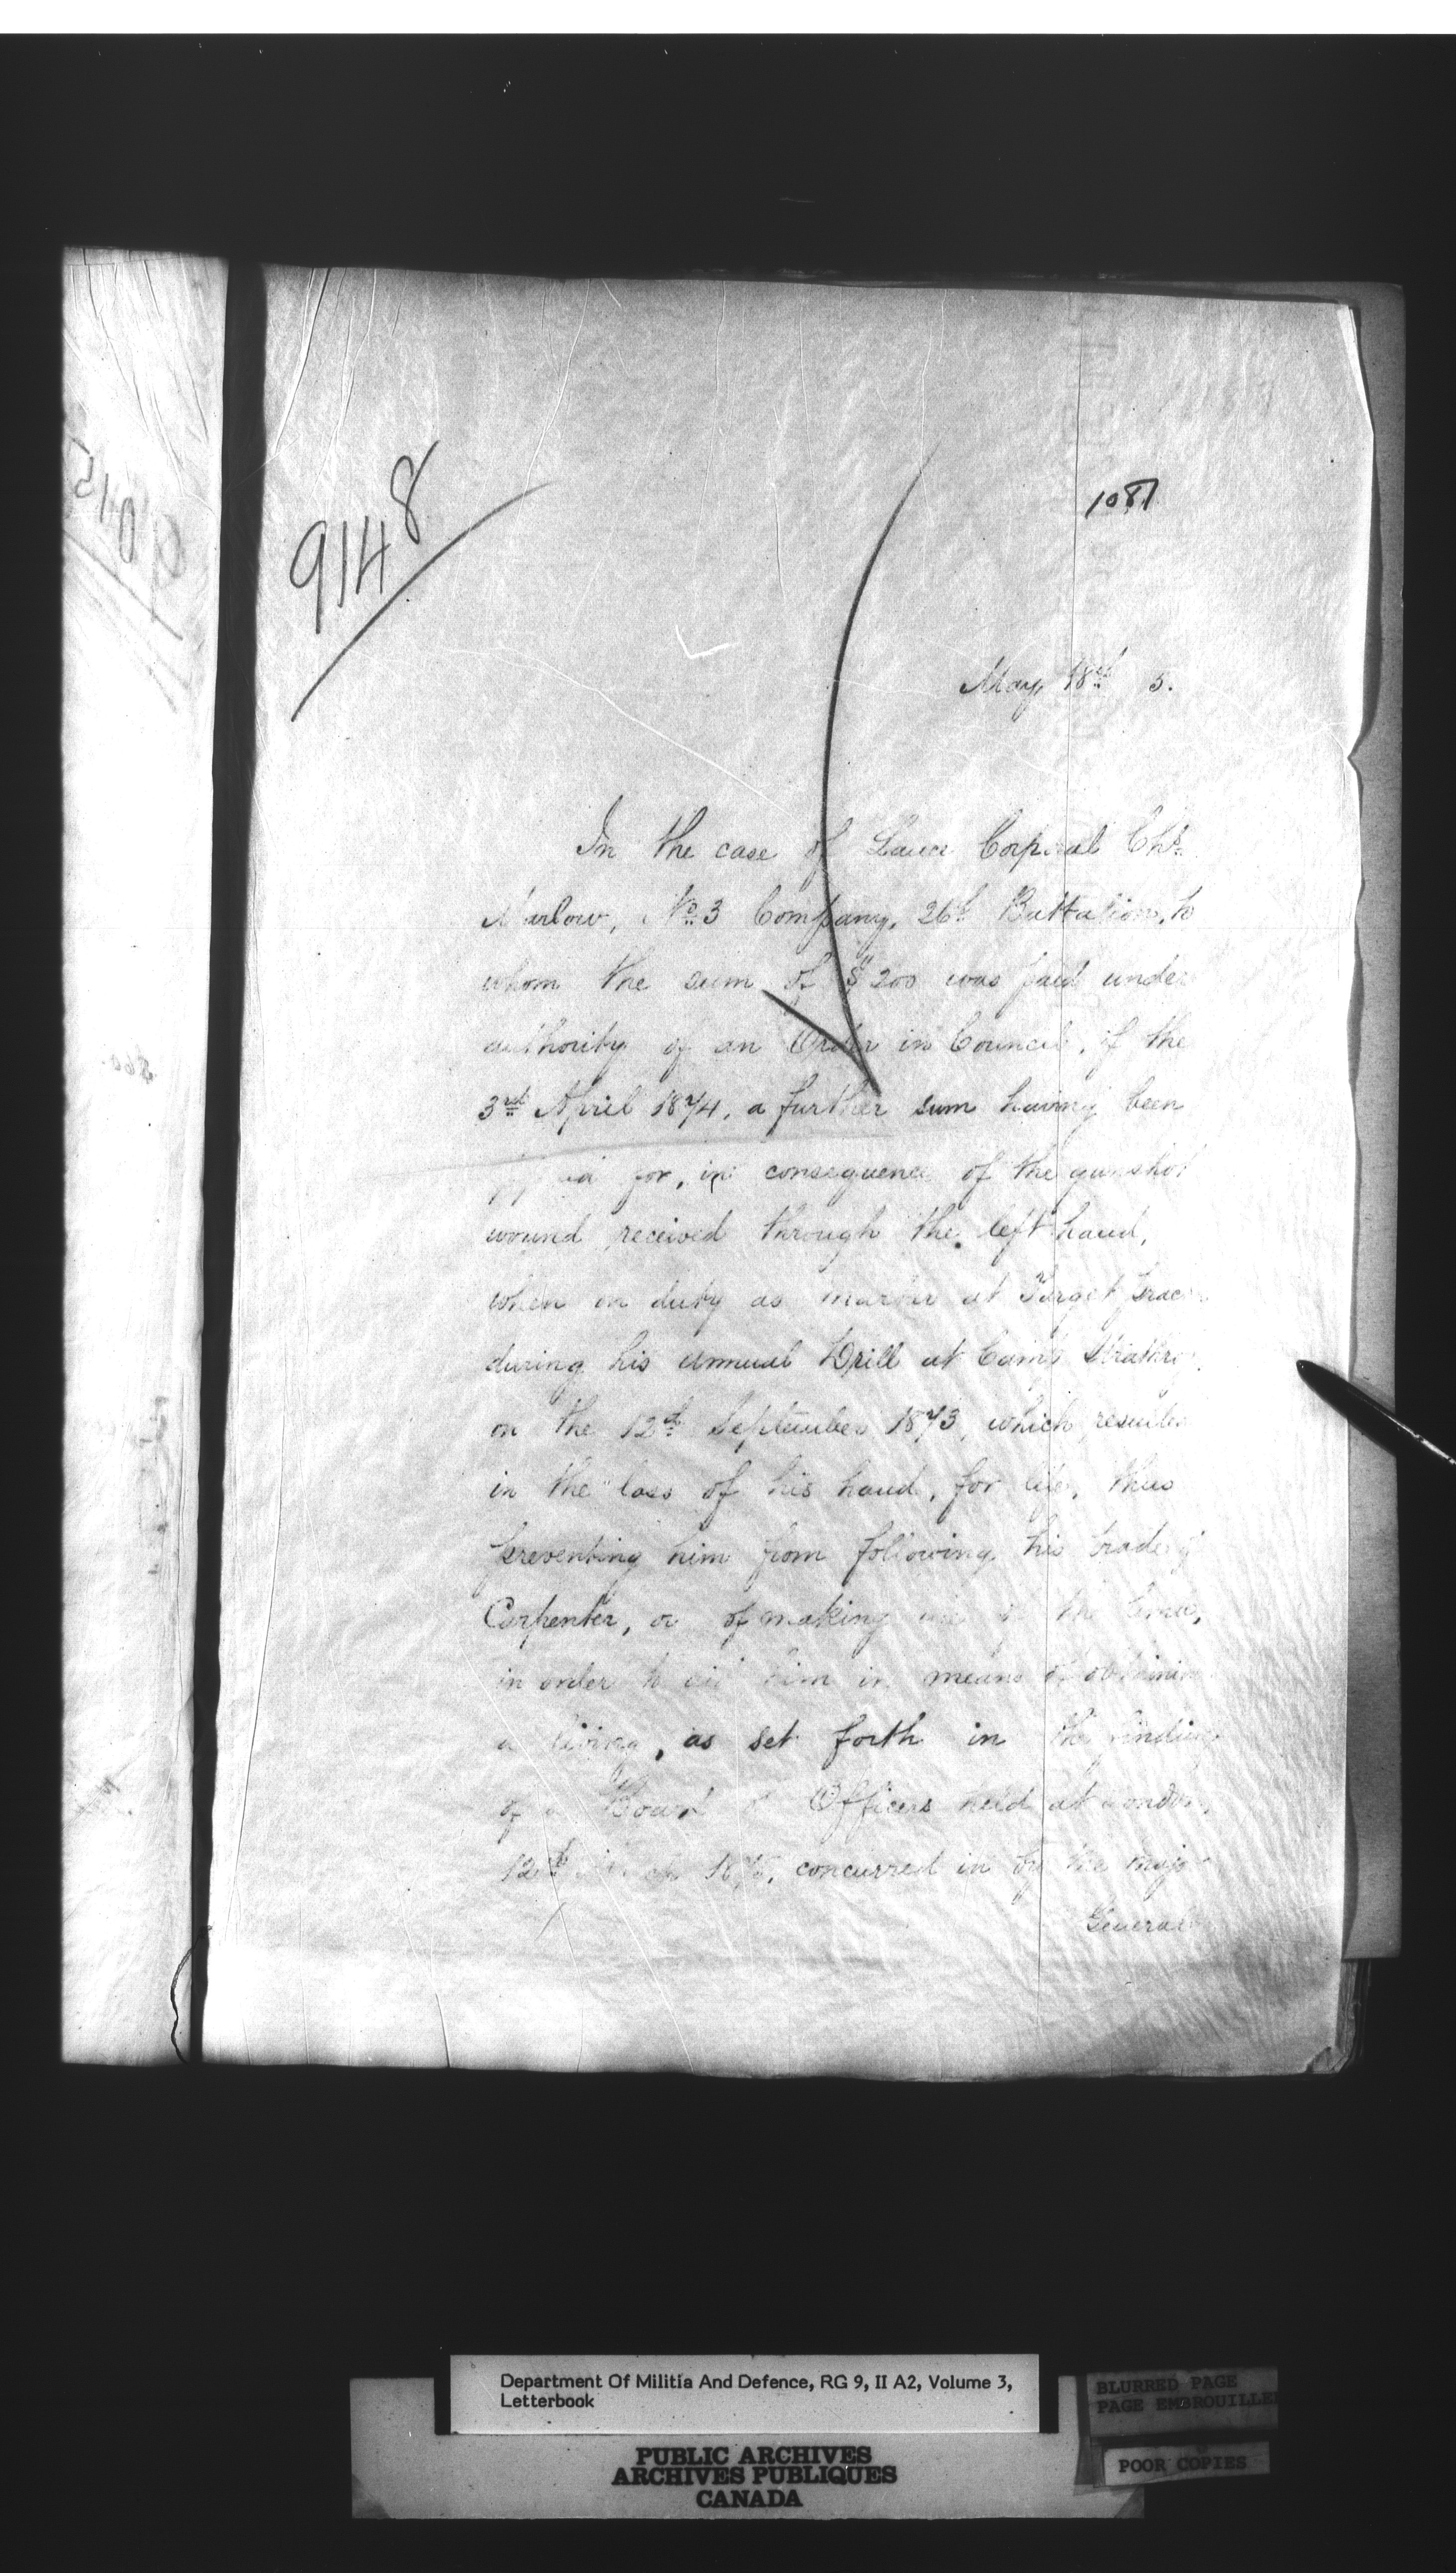 9148
1087
May 18th 5.
In the case of Lance Corporal Chs.
Marlow, No. 3 Company, 26th Battalion, to
whom the sum of $200 was paid under
authority of an Order in Council, of the
3rd April 1874, a further sum having been
for, in consequence of the gunshot
wound received through the left hand,
when on duty as marker at Target
during his annual Drill at Camp Strathroy
on the 12th September 1873, which
in the loss of his hand, for life, thus
preventing him from following his trade of
Carpenter, or of making use of the
in order to aid him in means of
a living, as set forth in the
of a Board of Officers held at London,
12th 1875, concurred in by the Major
General
Department Of Militia And Defence, RG 9, II A2, Volume 3,
Letterbook
PUBLIC ARCHIVES
ARCHIVES PUBLIQUES
CANADA
BLURRED PAGE
PAGE EMBROUILLEE
POOR COPIES